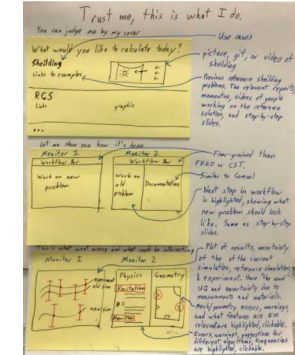 Trust me, this is what I do.
You can judge me by my cover
Use cases
What would you like to calculate today?
Sheilding
Links to examples
picture, gif, or video of
sheilding
Previous reference sheilding
problems. The relevant reports,
monovates, videos of people
working on the reference
solution, and step-by-step
slides.
RCS
Links
graphic
...
Let me show you how it's done
Monitor 1
Monitor 2
Workflow Bar
Workflow Bar
Work on new
problem
Work on
old
problem
Documentation
Finer-grained than
FEKO or CST.
Similar to Comsol
Next step in workflow
is highlighted, showing what
new problem should look
like. Same as step-by-step
slides.
This is what went wrong and what could be interesting
Monitor 1
Monitor 2
Physics
Geometry
Excitation
BC
Meshing
new sim
Plot of results, uncertainty
of the of the current
simulation, reference simulation,
& experiment. Have the word
UQ and uncertainty due to
measurements and materials.
Mesh/geometry errors, warnings,
and what features are EM
relevant are highlighted, clickable.
Errors, warnings, suggestions for
different algorithms, frequencies
are highlighted, clickable.